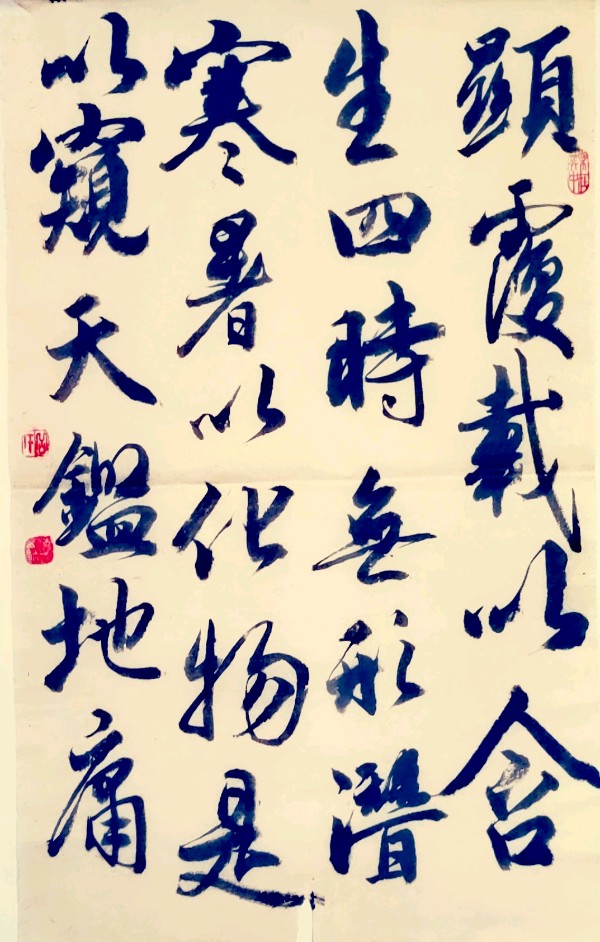 顯覆載以含
生四時無形潛
寒暑以化物是
以窺天鑑地庸